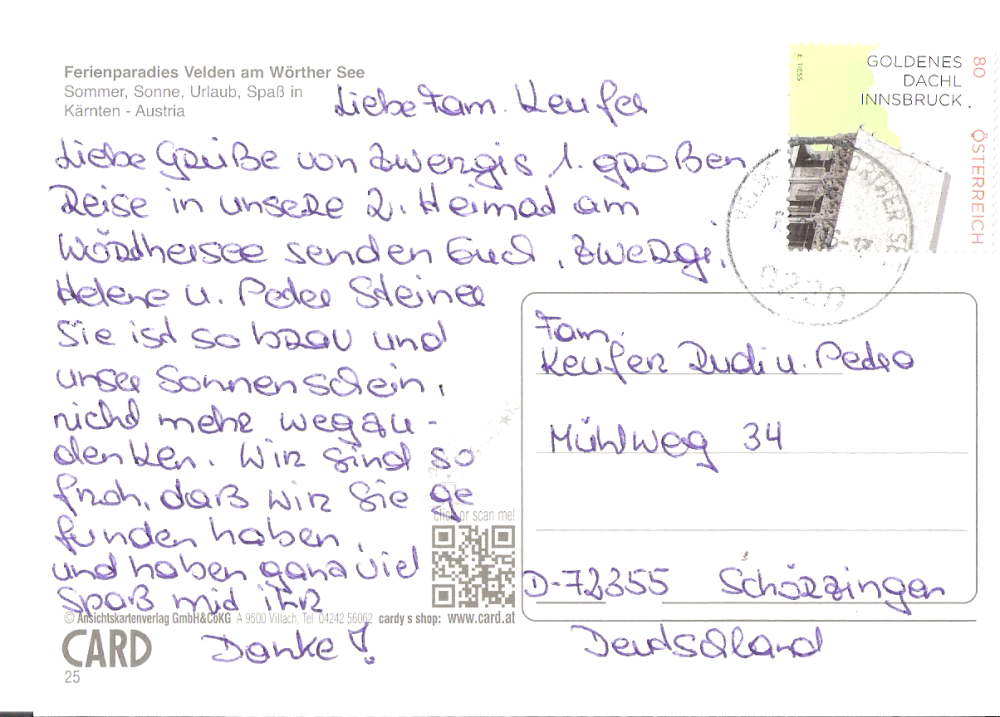 Ferienparadies Velden am Wörther See
Sommer, Sonne, Urlaub, Spaß in
Kärnten - Austria
E. TIBSS
GOLDENES
DACHL
INNSBRUCK
80
ÖSTERREICH
RTHER SE
9220
Liebe Fam. Keufer
Liebe Grüße von Zwergis 1. großen
Reise in unsere 2. Heimat am
Wörthersee senden Euch, Zwergi,
Helene u. Peter Steiner
Sie ist so brav und
unser Sonnenschein,
nicht mehr wegzu-
denken. Wir sind so
froh, daß wir Sie ge
funden haben,
und haben ganz viel
Spaß mit ihr
Danke!
Fam.
Keufer Rudi u. Petra
Mühlweg 34
D-72355 Schörzingen
Deutschland
click or scan me!
© Ansichtskartenverlag GmbH&CoKG A 9500 Villach, Tel. 04242 56062 cardy s shop: www.card.at
CARD
25